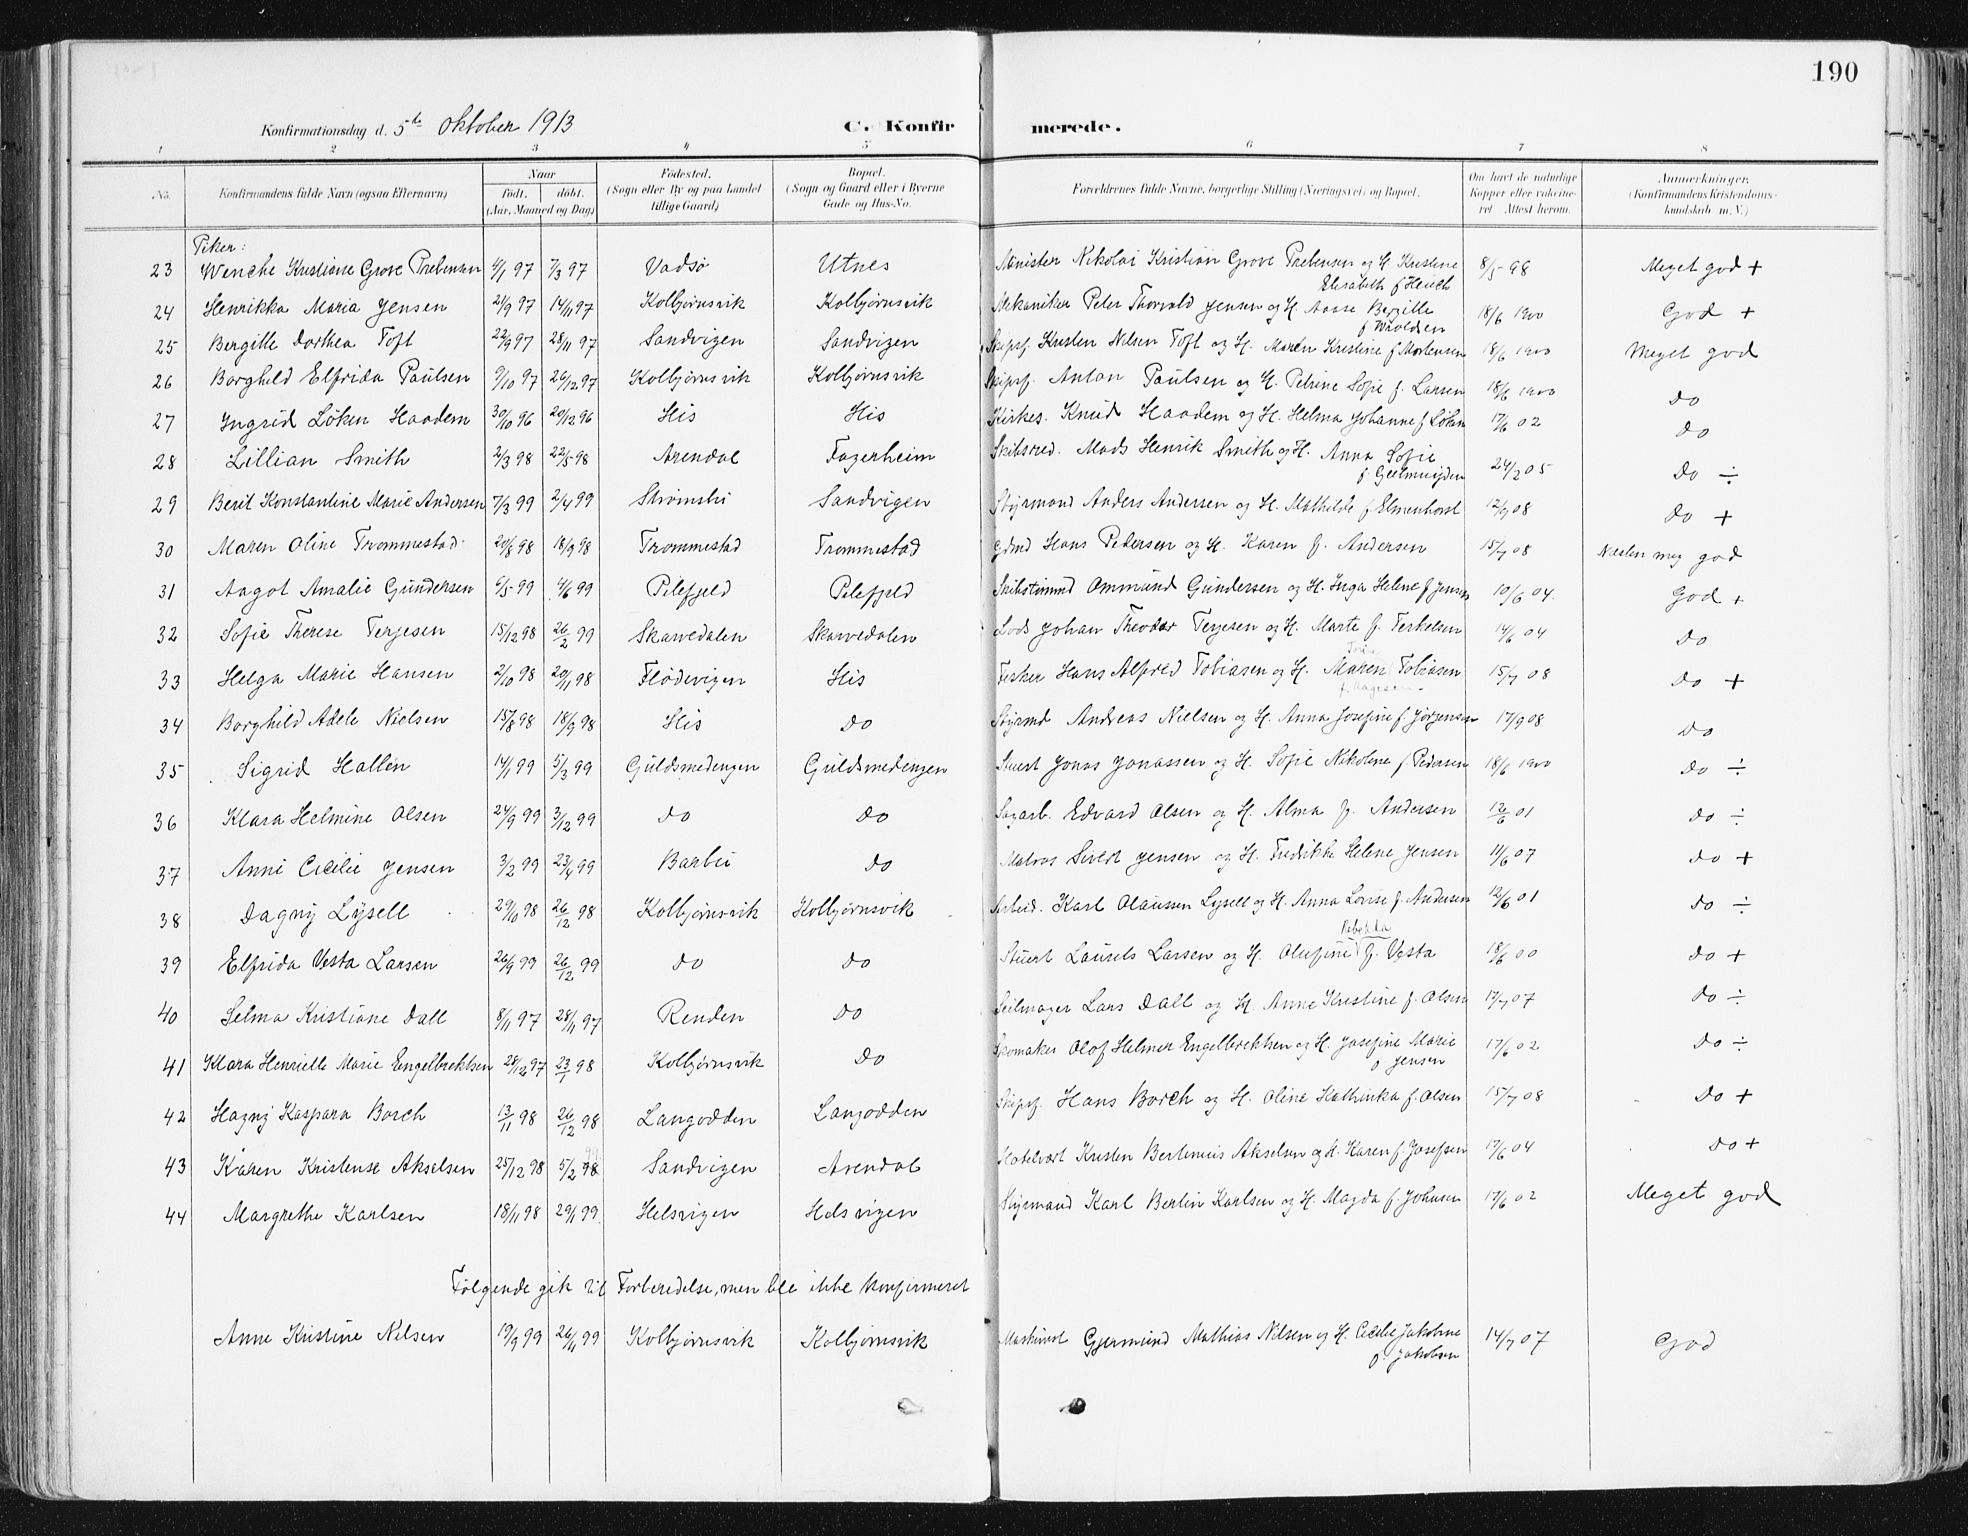 190
Konfirmationsdag d. 5te Oktober 1913 C. Konfirmerede.
1 2 3 4 5 6 7 8
No. Konfirmandens fulde Navn (ogsaa Efternavn) Naar født. døbt. (Aar, Maaned og Dag) Fødested. (Sogn eller By og paa Landet tillige Gaard) Bopæl. (Sogn og Gaard eller i Byerne Gade og Hus-No. Forældrenes fulde Navne, borgerlige Stilling (Næringsvei) og Bopæl. Om havt de naturlige Kopper eller vaccineret Attest herom. Anmærkninger. (Konfirmandens Kristendomskundskab m. V.)
Piker:
23 Wenche Kristiane Grove Prebensen 4/1 97 7/3 97 Vadsø Utnes Minister Nikolai Kristian Grove Prebensen og H. Kristine Elisabeth f Heuch 8/5 98 Meget god +
24 Henrikka Maria Jensen 21/9 97 14/11 97 Kolbjørnsvik Kolbjørnsvik Mekaniker Peter Thorvald Jensen og H. Aasse Bergitte f. Wroldsen 18/6 1900 God +
25 Bergitte Dorthea Toft 22/9 97 28/11 97 Sandvigen Sandvigen Skipsf. Kristen Nilsen Toft og H. Maren Kristine f Mortensen 18/6 1900 Meget god
26 Borghild Elfrida Paulsen 9/10 97 26/12 97 Kolbjørnsvik Kolbjørnsvik Skipsf. Anton Paulsen og H. Petrine Sofie f. Larsen 18/6 1900 do
27 Ingrid Løken Haadem 30/10 96 20/12 96 His His Kirkes. Knud Haadem og H. Helma Johanne f Løken 17/6 02 do
28 Lillian Smith 2/3 98 22/5 98 Arendal Fagerheim Skibsred. Mads Henrik Smith og H. Anna Sofie f Geelmuyden 24/2 05 do ÷
29 Berit Konstantine Marie Andersen 7/3 99 2/4 99 Strømsbu Sandvigen Styrmand Anders Andersen og H. Mathilde f Elmenhorst 12/9 08 do +
30 Maren Oline Trommestad 20/8 98 18/9 98 Trommestad Trommestad Gdmd Hans Pedersen og H. Karen f. Andersen 15/7 08 Næsten meg god
31 Aagot Amalie Gundersen 6/5 99 4/6 99 Pilefjeld Pilefjeld Skibstømmd Ommund Gundersen og H. Inga Helene f Jensen 10/6 04. God +
32 Sofie Therese Terjesen 15/12 98 26/2 99 Skarvedalen Skarvedalen Lods Johan Theodor Terjesen og H. Marte f. Terkelsen 14/6 04 do
33 Helga Marie Hansen 2/10 98 20/11 98 Flødevigen His Fisker Hans Alfred Tobiassen og H. Maren Tobiasen f. Aagesen 15/7 08 do +
34 Borghild Adele Nielsen 15/8 98 18/9 98 His do Styrmd Andreas Nielsen og H. Anna Josefine f. Jørgensen 17/9 08 do
35 Sigrid Hallen 14/1 99 5/3 99 Guldsmedengen Guldsmedengen Stuert Jonas Jonassen og H. Sofie Nikoline f Pedersen 18/6 1900 do ÷
36 Klara Helmine Olsen 24/9 99 3/12 99 do do Sagarb. Edvard Olsen og H. Alma f. Andersen 12/6 01 do ÷
37 Anni Cicilie Jensen 3/2 99 23/4 99 Barbu do Matros Sivert Jensen og H. Fredrikke Helene Jensen 11/6 07 do +
38 Dagny Lysell 29/10 98 26/12 98 Kolbjørnsvik Kolbjørnsvik Arbeid. Karl Olaussen Lysell og H. Anna Lovise f. Andersen 12/6 01 do ÷
39 Elfrida Vesta Larsen 26/9 99 26/12 99 do do Stuert Laurits Larsen og H. Olufine Rebekka f. Vesta 18/6 00 do +
40 Selma Kristiane Dall 8/11 97 28/11 97 Renden do Seilmager Lars Dall og H. Anne Kristine f. Olsen 17/7 07 do ÷
41 Klara Henriette Marie Engelbrektsen 28/12 97 23/1 98 Kolbjørnsvik do Skomaker Olof Helmer Engelbrektsen og H. Josefine Marie f Jensen 17/6 02 do ÷
42 Hagny Kaspara Borch 13/11 98 26/12 98 Langodden Langodden Skipsf. Hans Borch og H. Oline Kathinka f. Olsen 15/7 08 do +
43 Karen Kristense Akselsen 25/12 98 5/2 98 99 Sandvigen Arendal Hotelvært Kristen Bertinius Akselsen og H. Karen f. Josefsen 17/6 04 do +
44 Margrethe Karlsen 18/11 98 29/1 99. Helsvigen Helsvigen Styrmand Karl Bertin Karlsen og H. Magda f. Johnsen 17/6 02 Meget god
Følgende gik til Forberedelse, men ble ikke konfirmeret
Anne Kristine Nilsen 19/9 99 26/11 99 Kolbjørnsvik Kolbjørnsvik Maskinist Gjermund Mathias Nilsen og H. Cecilie Jakobine f. Jakobsen 14/7 07 God